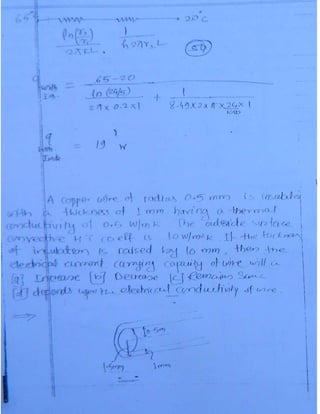 65° 20°C
ln(r₂/r₁) 1
2πkL h2πr₂L
q with = 65-20
ln (24/15) + 1
2π x 0.2 x 1 8.49x2xπx24x1
q = 19 W
A copper wire of radius 0.5 mm is insulated
with a thickness of 1 mm having a thermal
conductivity of 0.5 W/mK The outside surface
convective HT coeff is 10 W/m²K If the thickness
of insulation is raised by 10 mm, then the
electrical current carrying capacity of wire will
[a] Increase [b] Decrease [c] Remains Same
[d] depends upon the electrical conductivity of wire
⇒
0.5m
1mm